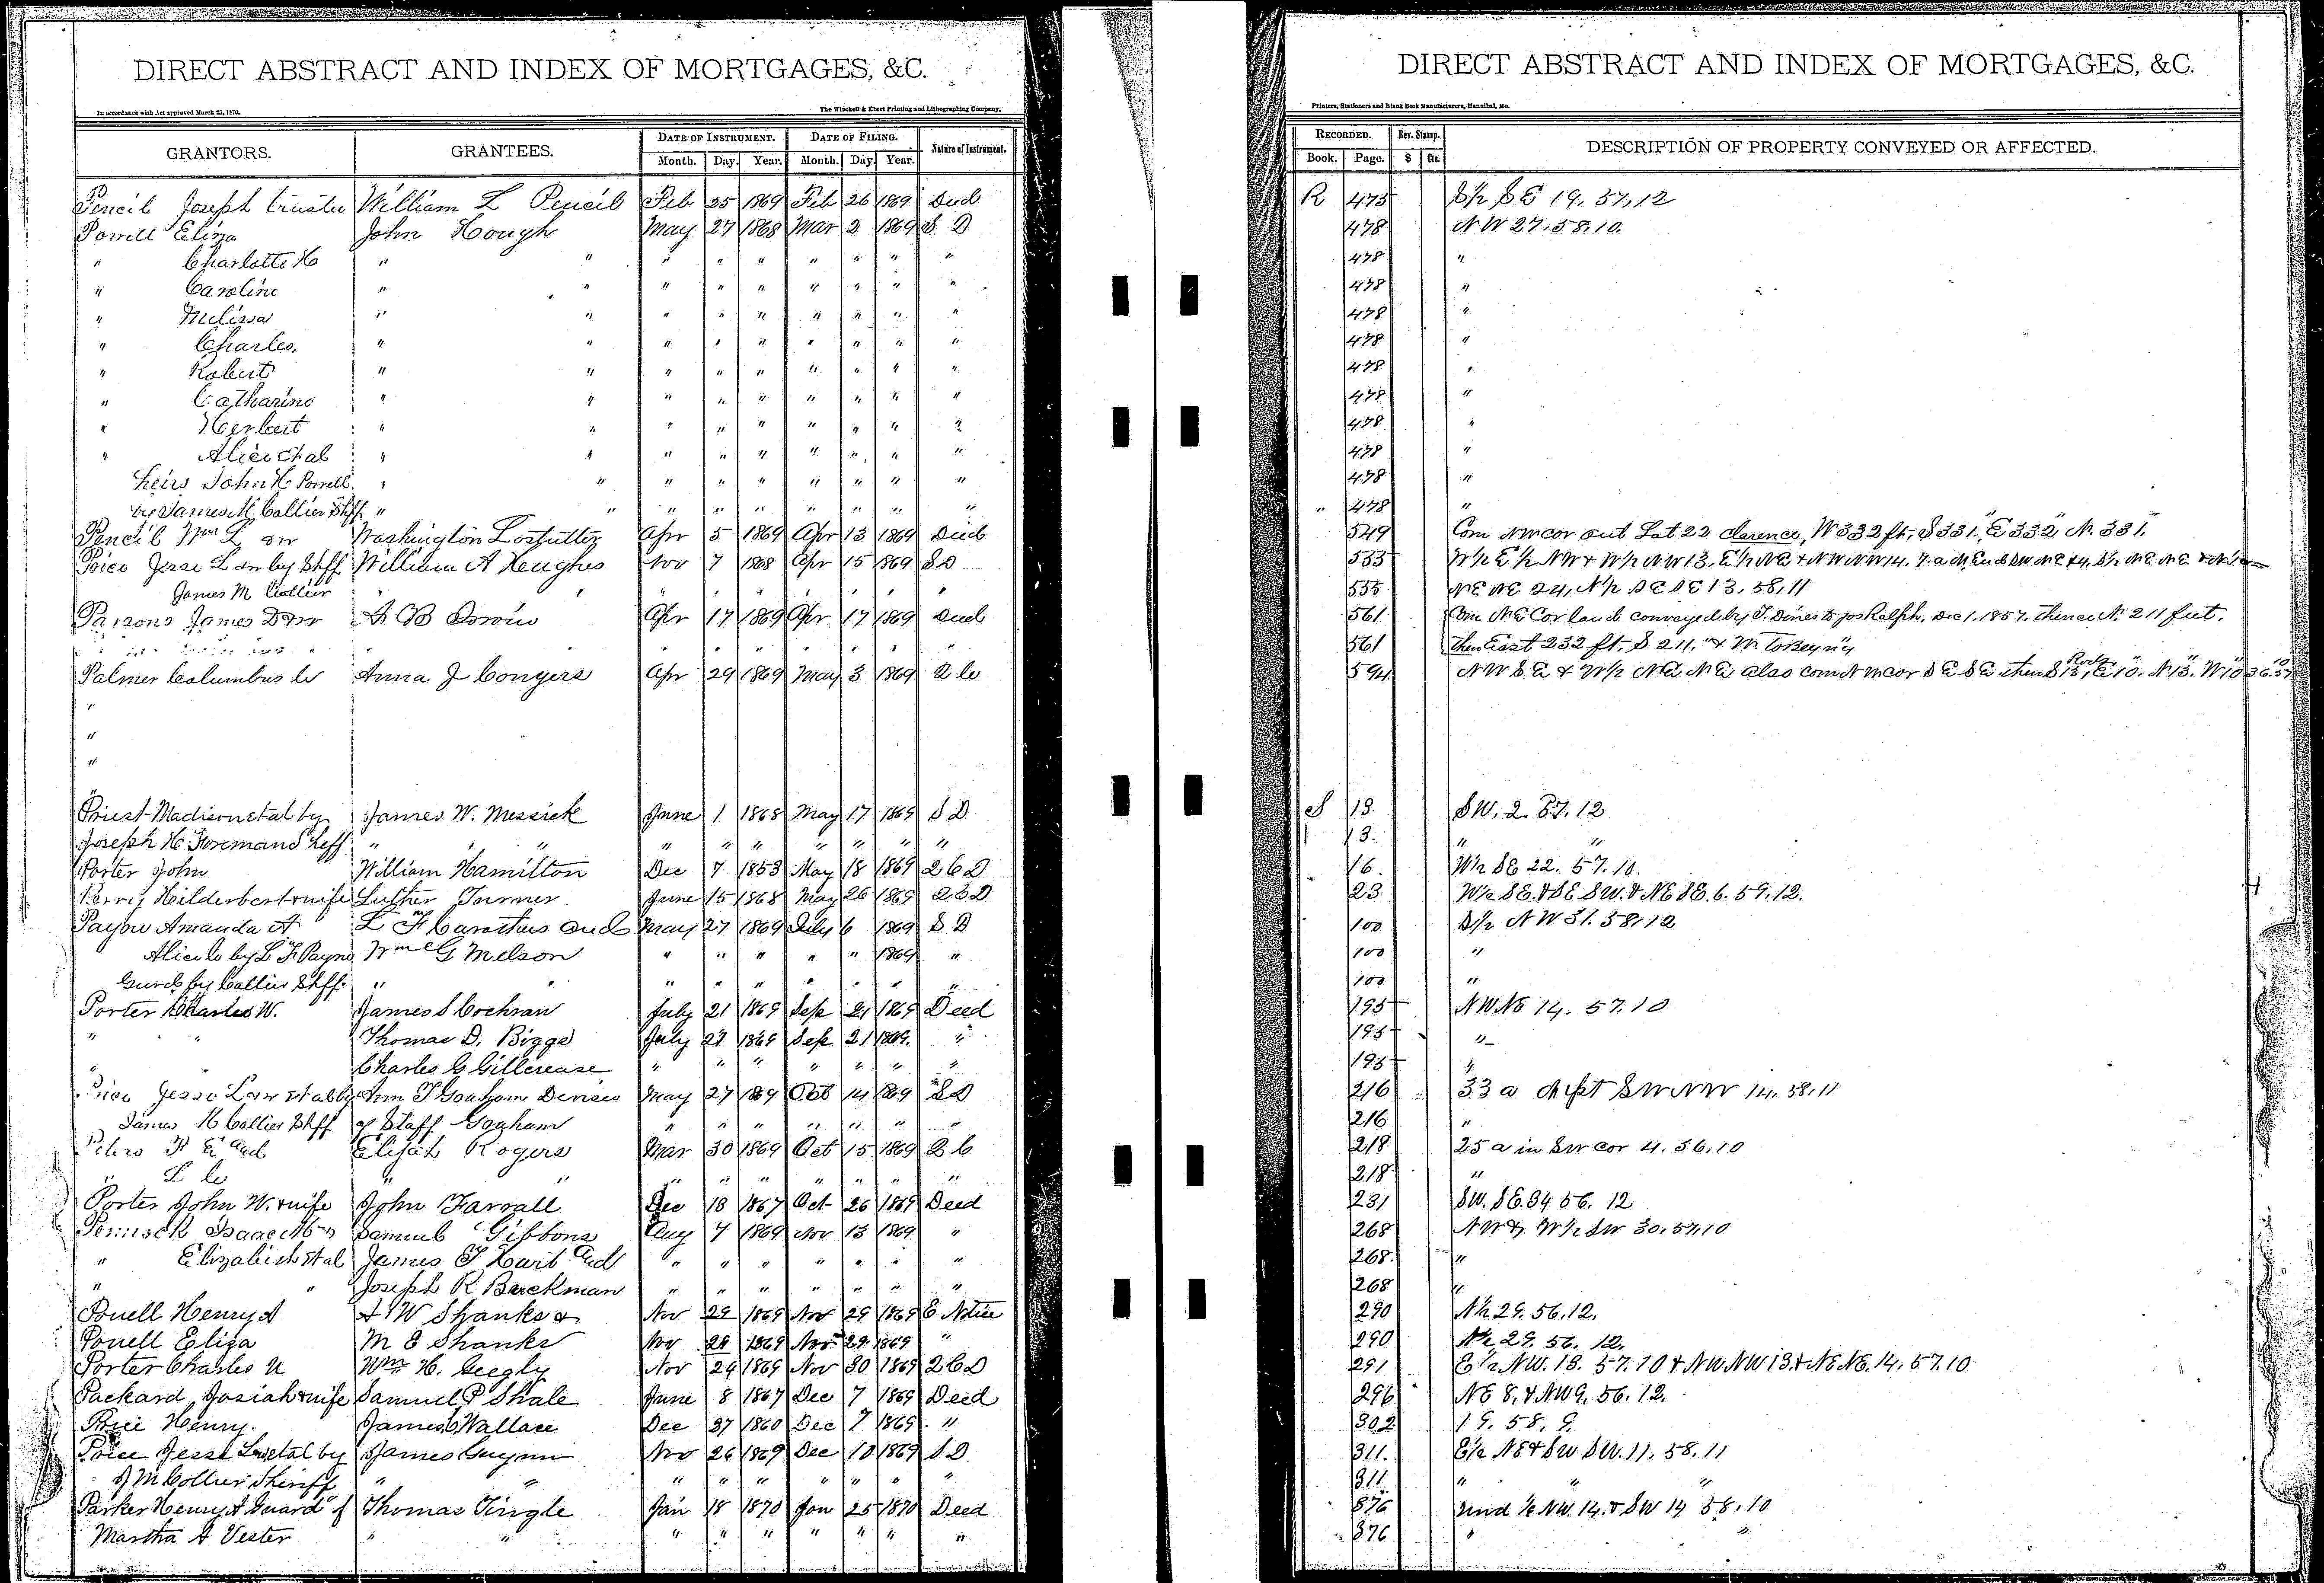 DIRECT ABSTRACT AND INDEX OF MORTGAGES, &C.
In accordance with Act approved March 25, 1870. The Winchell & Ebert Printing and Lithographing Company,
GRANTORS. GRANTEES. DATE OF INSTRUMENT. DATE OF FILING. Nature of Instrument.
Month. Day. Year. Month. Day. Year.
Pencil Joseph trustee William L Pencil Feb 25 1869 Feb 26 1869 Deed
Powell Eliza John Hough May 27 1868 Mar 2 1869 S D
" Charlotte H " " " " " " " " "
" Caroline " " " " " " " " "
" Melissa " " " " " " " " "
" Charles, " " " " " " " " "
" Robert " " " " " " " " "
" Catharine " " " " " " " " "
" Herbert " " " " " " " " "
" Alice et al " " " " " " " " "
heirs John H Powell " " " " " " " " "
by James M Collier Shff " " " " " " " " "
Pencil Wm L & w Washington Lostutter Apr 5 1869 Apr 13 1869 Deed
Price Jesse L & w by Shff William A Hughes Nov 7 1868 Apr 15 1869 S D
James M Collier " " " " " " " " "
Parsons James D & w A B Apr 17 1869 Apr 17 1869 Deed
Palmer Columbus C Anna J Conyers Apr 29 1869 May 3 1869 2 C
"
"
"
Priest Madison et al by James W. Messick June 1 1868 May 17 1869 S D
Joseph H Foreman Sheff " " " " " " " " "
Porter John William Hamilton Dec 7 1853 May 18 1869 2 C D
Perry Hilderbert & wife Luther Turner June 15 1868 May 26 1869 2 C D
Amanda A L F Carothers and May 27 1869 July 6 1869 S D
Alice C by L F Payne Wm G Melson " " " " " 1869 "
Gurd by Collier Shff. " " " " " " " " "
Porter Charles W. James S Cochran July 21 1869 Sep 21 1869 Deed
" " Thomas D. Biggs July 21 1869 Sep 21 1869. "
" Charles G Gillerease " " " " " " "
Price Jesse L & w et al by Ann T Gorham Devisee May 27 1869 Oct 14 1869 S D
James M Collier Shff of Staff Gorham " " " " " " "
F E and Elijah Rogers Mar 30 1869 Oct 15 1869 2 C
" L C " " " " " " " " "
Porter John W. & wife John Farrall Dec 18 1867 Oct 26 1869 Deed
Penisck Isaac M & Samuel Gibbons Aug 7 1869 Nov 13 1869 "
" Elizabeth et al James T and " " " " " " "
" " Joseph R Barckman " " " " " " "
Powell Henry A A W Shanks & Nov 29 1869 Nov 29 1869 E Notice
Powell Eliza M E Shanks Nov 29 1869 Nov 29 1869 "
Porter Charles W Wm H. Nov 29 1869 Nov 30 1869 2 C D
Packard Josiah & wife Samuel P Shale June 8 1867 Dec 7 1869 Deed
Price Henry. James C Wallace Dec 27 1860 Dec 7 1869. "
Price Jesse L & w et al by James Guynn Nov 26 1869 Dec 10 1869 S D
J M Collier Sheriff " " " " " " " " "
Parker Henry A Guard" of Thomas Tingle Jan 18 1870 Jan 25 1870 Deed
Martha A Vester " " " " " " " " "
DIRECT ABSTRACT AND INDEX OF MORTGAGES, &C.
Printers, Stationers and Blank Book Manufacturers, Hannibal, Mo.
RECORDED. Rev. Stamp. DESCRIPTION OF PROPERTY CONVEYED OR AFFECTED.
Book. Page. $ Cts.
R 475 S½ SE 19, 57, 12
478 NW 27. 58. 10.
478 "
478 "
478 "
478 "
478 "
478 "
478 "
478 "
478 "
" 478 "
549 Com NW cor out Lot 22 Clarence, W 332 ft, S 331", E 332" N. 331."
555 W½ E½ NW & W½ NW 13, E½ NE & NW NW 14,
555 NE NE 24, N½ SE SE 13, 58, 11
561 Com NE Cor land conveyed by T. Dines to Jos Ralph, Dec 1. 1857. thence N. 211 feet.
561 then East 232 ft, S 211." & W. to Beg'ng
594 NW SE & W½ NE NE also com NW cor SE SE then S 13, Rods E 10. N 13. W 10
S 13. SW. 2. 57. 12
13. " "
16. W½ SE 22. 57. 10.
23. W½ SE. & SE SW. & NE SE. 6. 59. 12.
100 S½ NW 31. 58. 12
100 "
100 "
195 NW NE 14. 57. 10
195 "
195 "
216 33 a off pt SW NW 14. 58. 11
216 "
218 25 a in SW cor 4. 56. 10
218 "
231 SW. SE. 34 56. 12
268 NW & W½ SW 30, 57, 10
268. "
268 "
290 N½ 29. 56. 12.
290 N½ 29. 56. 12.
291 E½ NW. 13. 57. 10 & NW NW 13. & NE NE. 14. 57. 10
296 NE 8. & NW 9. 56. 12.
302 19. 58. 9.
311. E½ NE & SW SW. 11. 58. 11
311 " " "
376 und ½ NW. 14. & SW 14 58. 10
376 " "